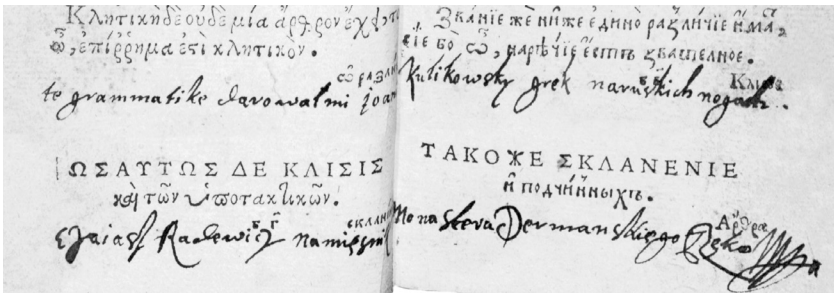 Κλητικὴ δὲ οὐδεμία ἄρθρον ἔχει, τὸ
ὦ, ἐπίρρημα ἐστὶ κλητικόν.
te grammatike darowal mi joan
ΩΣΑΥΤΩΣ ΔΕ ΚΛΙΣΙΣ
καὶ τῶν ὑποτακτικῶν.
Ezaiasz Radewicz
Зва́нїе же ниже еди́но разли́чїе и҆́ма,
сїе бо ѽ, нарѣ́чїе есть зва́телное.
Kulikowsky grek naruskich nogach..
ТАКОЖЕ ΣΚЛАНЕΝІЕ
и҆ подчине́нныхъ.
Monastera Dermanskiego
Ἄρθρα